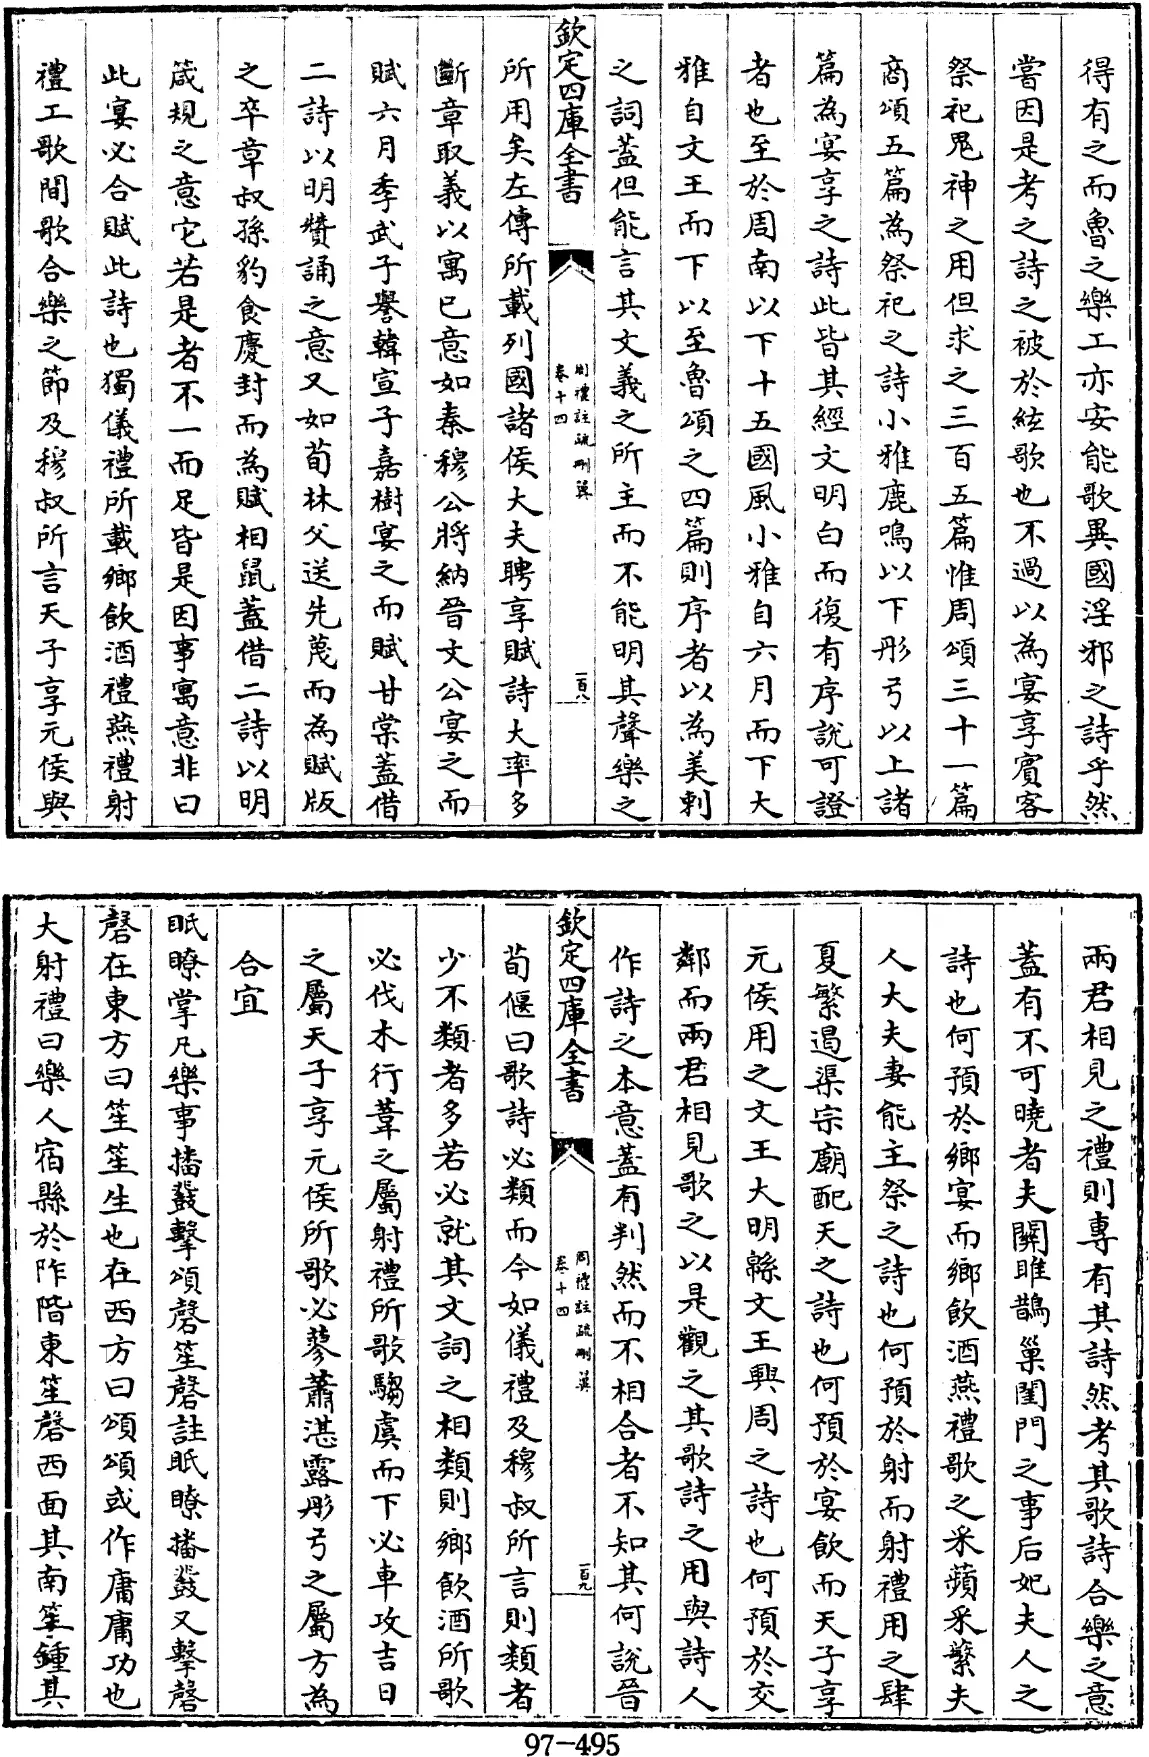 得有之而魯之樂工亦安能歌異國淫邪之詩乎然
嘗因是考之詩之被於絃歌也不過以為宴享賓客
祭祀鬼神之用但求之三百五篇惟周頌三十一篇
商頌五篇為祭祀之詩小雅鹿鳴以下彤弓以上諸
篇為宴享之詩此皆其經文明白而復有序說可證
者也至於周南以下十五國風小雅自六月而下大
雅自文王而下以至魯頌之四篇則序者以為美刺
之詞蓋但能言其文義之所主而不能明其聲樂之
欽定四庫全書
周禮註疏刪翼
卷十四
一百八
所用矣左傳所載列國諸侯大夫聘享賦詩大率多
斷章取義以寓已意如秦穆公將納晉文公宴之而
賦六月季武子譽韓宣子嘉樹宴之而賦甘棠蓋借
二詩以明贊誦之意又如荀林父送先蔑而為賦版
之卒章叔孫豹食慶封而為賦相鼠蓋借二詩以明
箴規之意它若是者不一而足皆是因事寓意非曰
此宴必合賦此詩也獨儀禮所載鄉飲酒禮燕禮射
禮工歌間歌合樂之節及穆叔所言天子享元侯與
兩君相見之禮則專有其詩然考其歌詩合樂之意
蓋有不可曉者夫關雎鵲巢閨門之事后妃夫人之
詩也何預於鄉宴而鄉飲酒燕禮歌之采蘋采蘩夫
人大夫妻能主祭之詩也何預於射而射禮用之肆
夏繁遏渠宗廟配天之詩也何預於宴飲而天子享
元侯用之文王大明緜文王興周之詩也何預於交
鄰而兩君相見歌之以是觀之其歌詩之用與詩人
作詩之本意蓋有判然而不相合者不知其何說晉
欽定四庫全書
周禮註疏刪翼
卷十四
一百九
荀偃曰歌詩必類而今如儀禮及穆叔所言則類者
少不類者多若必就其文詞之相類則鄉飲酒所歌
必伐木行葦之屬射禮所歌騶虞而下必車攻吉日
之屬天子享元侯所歌必蓼蕭湛露彤弓之屬方為
合宜
眡瞭掌凡樂事播鼗擊頌磬笙磬註眡瞭播鼗又擊磬
磬在東方曰笙笙生也在西方曰頌頌或作庸庸功也
大射禮曰樂人宿縣於阼階東笙磬西面其南笙鍾其
97-495